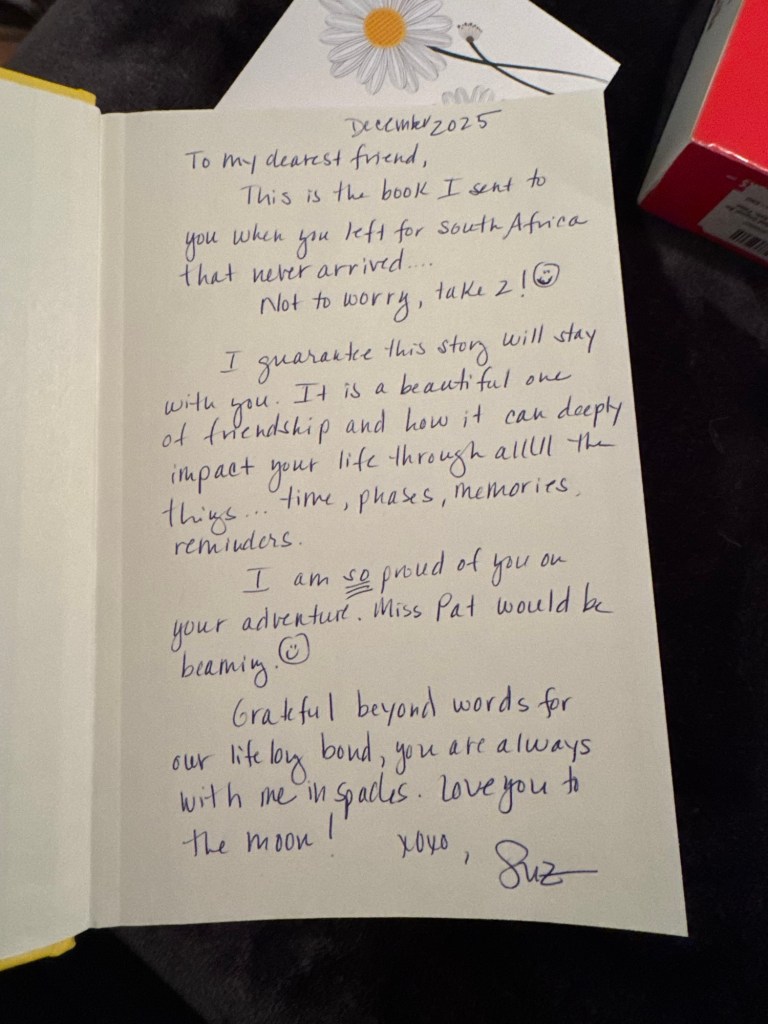 December 2025
To my dearest friend,
This is the book I sent to
you when you left for South Africa
that never arrived....
Not to worry, take 2! ☺
I guarantee this story will stay
with you. It is a beautiful one
of friendship and how it can deeply
impact your life through allllll the
things... time, phases, memories,
reminders.
I am so proud of you on
your adventure. Miss Pat would be
beaming. ☺
Grateful beyond words for
our life long bond, you are always
with me in spades. Love you to
the moon! xoxo, Suz